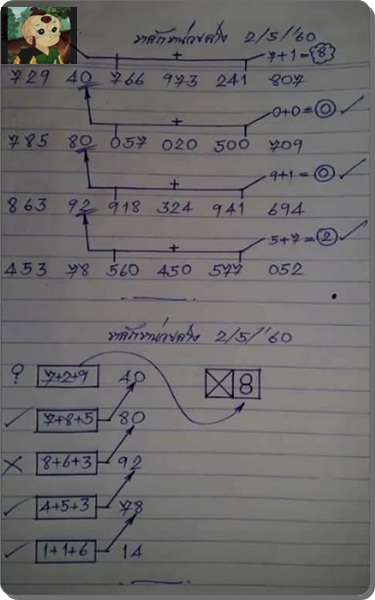 หลักหน่วยล่าง 2/5/'60
+ 7+1=8
729 40 766 973 241 807
+ 0+0=0 ✓
785 80 057 020 500 709
+ 9+1=0 ✓
863 92 918 324 941 694
+ 5+7=2 ✓
453 78 560 450 577 052
หลักหน่วยล่าง 2/5/'60
? 7+2+9 40 8
✓ 7+8+5 80
✗ 8+6+3 92
✓ 4+5+3 78
✓ 1+1+6 14